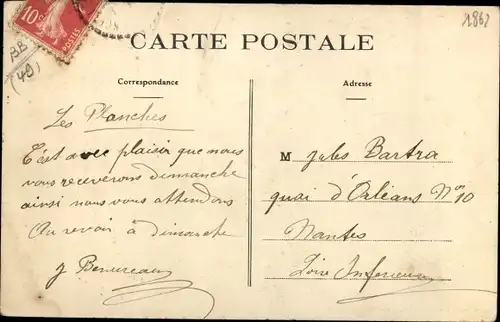 10c
POSTES
1862
BB
(49)
CARTE POSTALE
Correspondance
Adresse
Les Planches
C'est avec plaisir que nous
vous recevrons dimanche
ainsi nous vous attendons
Au revoir à dimanche
M Jules Bartra
quai d'Orléans Nº 10
Nantes
Loire Inférieure